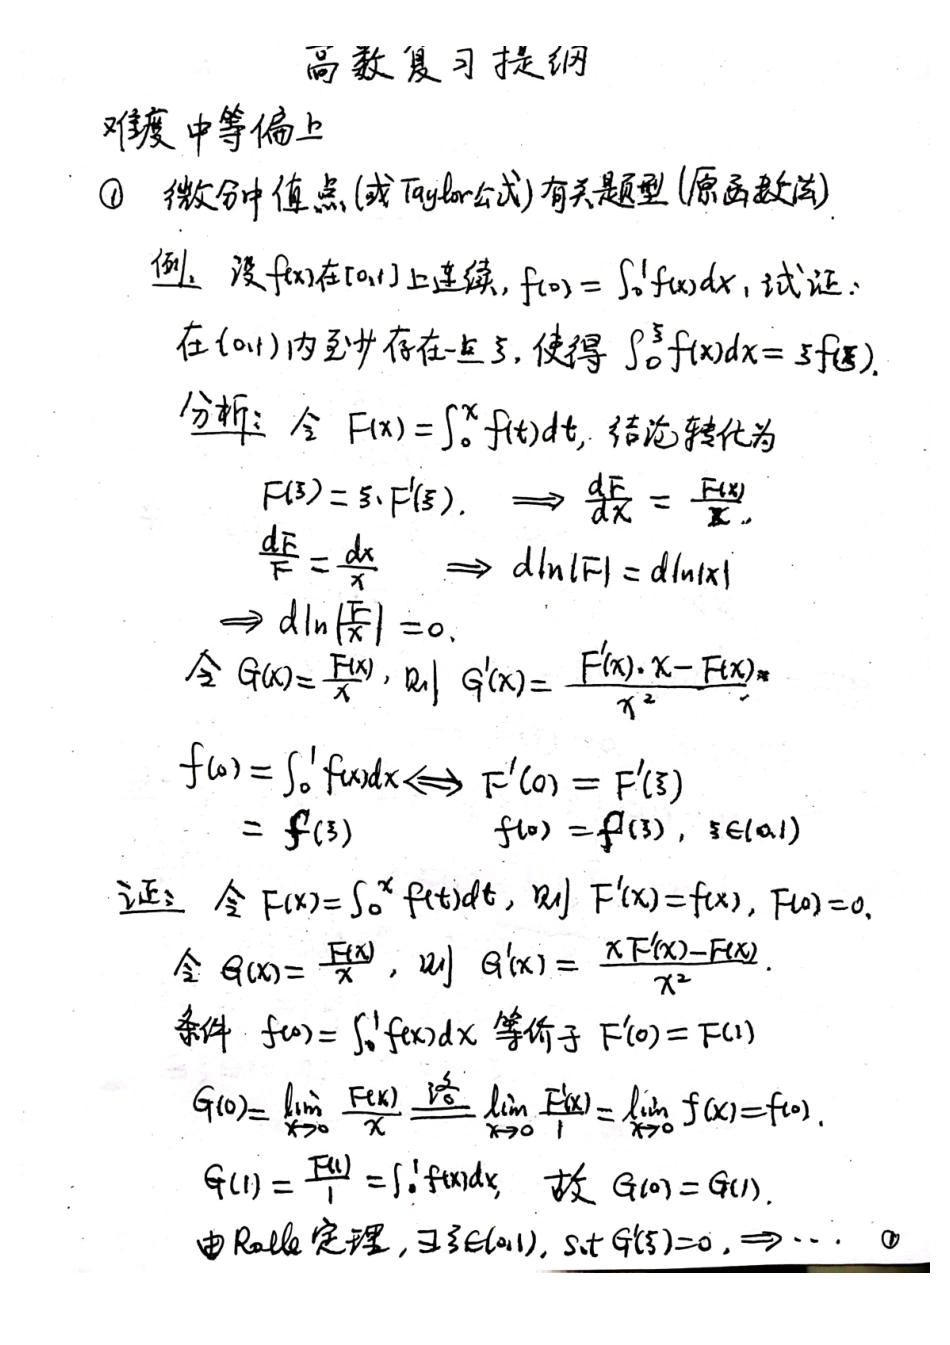 高数复习提纲
难度中等偏上
① 微分中值点(或Taylor公式)有关题型(原函数法)
例. 设f(x)在[0,1]上连续, f(0)=∫₀¹f(x)dx, 试证:
在(0,1)内至少存在一点ξ, 使得 ∫₀^ξ f(x)dx=ξf(ξ).
分析: 令 F(x)=∫₀ˣ f(t)dt, 结论转化为
F(ξ)=ξ·F'(ξ). ⟹ dF/dx = F(x)/x.
dF/F = dx/x ⟹ dln|F|=dln|x|
⟹ dln|F/x|=0.
令 G(x)=F(x)/x, 则 G'(x)= (F'(x)·x-F(x))/x²
f(0)=∫₀¹f(x)dx ⟺ F'(0)=F'(ξ)
=f(ξ) f(0)=f(ξ), ξ∈(0,1)
证: 令 F(x)=∫₀ˣ f(t)dt, 则 F'(x)=f(x), F(0)=0.
令 G(x)=F(x)/x, 则 G'(x)= (xF'(x)-F(x))/x².
条件 f(0)=∫₀¹f(x)dx 等价于 F'(0)=F(1)
G(0)=lim x→0 F(x)/x 洛 0/0 = lim x→0 F'(x)/1 = lim x→0 f(x)=f(0).
G(1)=F(1)/1=∫₀¹f(x)dx, 故 G(0)=G(1).
由Rolle定理, ∃ξ∈(0,1), s.t G'(ξ)=0, ⟹ … . ①